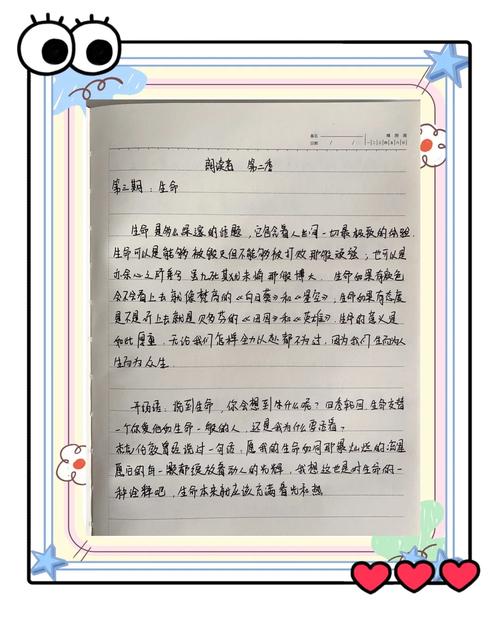 朗读者 第二季
第三期：生命
生命是多么深邃的话题，它包含着人世间一切最极致的体验
生命可以是能够被毁灭但不能够被打败那般顽强，也可以是
亦余心之所善兮 虽九死其犹未悔那般博大。生命如果有颜色
会不会看上去就像梵高的《向日葵》和《星空》，生命如果有态度
是不是听上去就是贝多芬的《田园》和《英雄》。生命的意义是
如此厚重，无论我们怎样全力以赴都不为过，因为我们生而为人
生而为众生.
开场语：说到生命，你会想到些什么呢？四季轮回 生命交替
一个你爱他如生命一般的人，还是我为什么而活着？
杰克伦敦曾经说过一句话：愿我的生命如同那最灿烂的流星
愿它的每一颗都绽放着动人的光辉，我想这也是对生命的一
种诠释吧，生命本来就应该充满着光和热